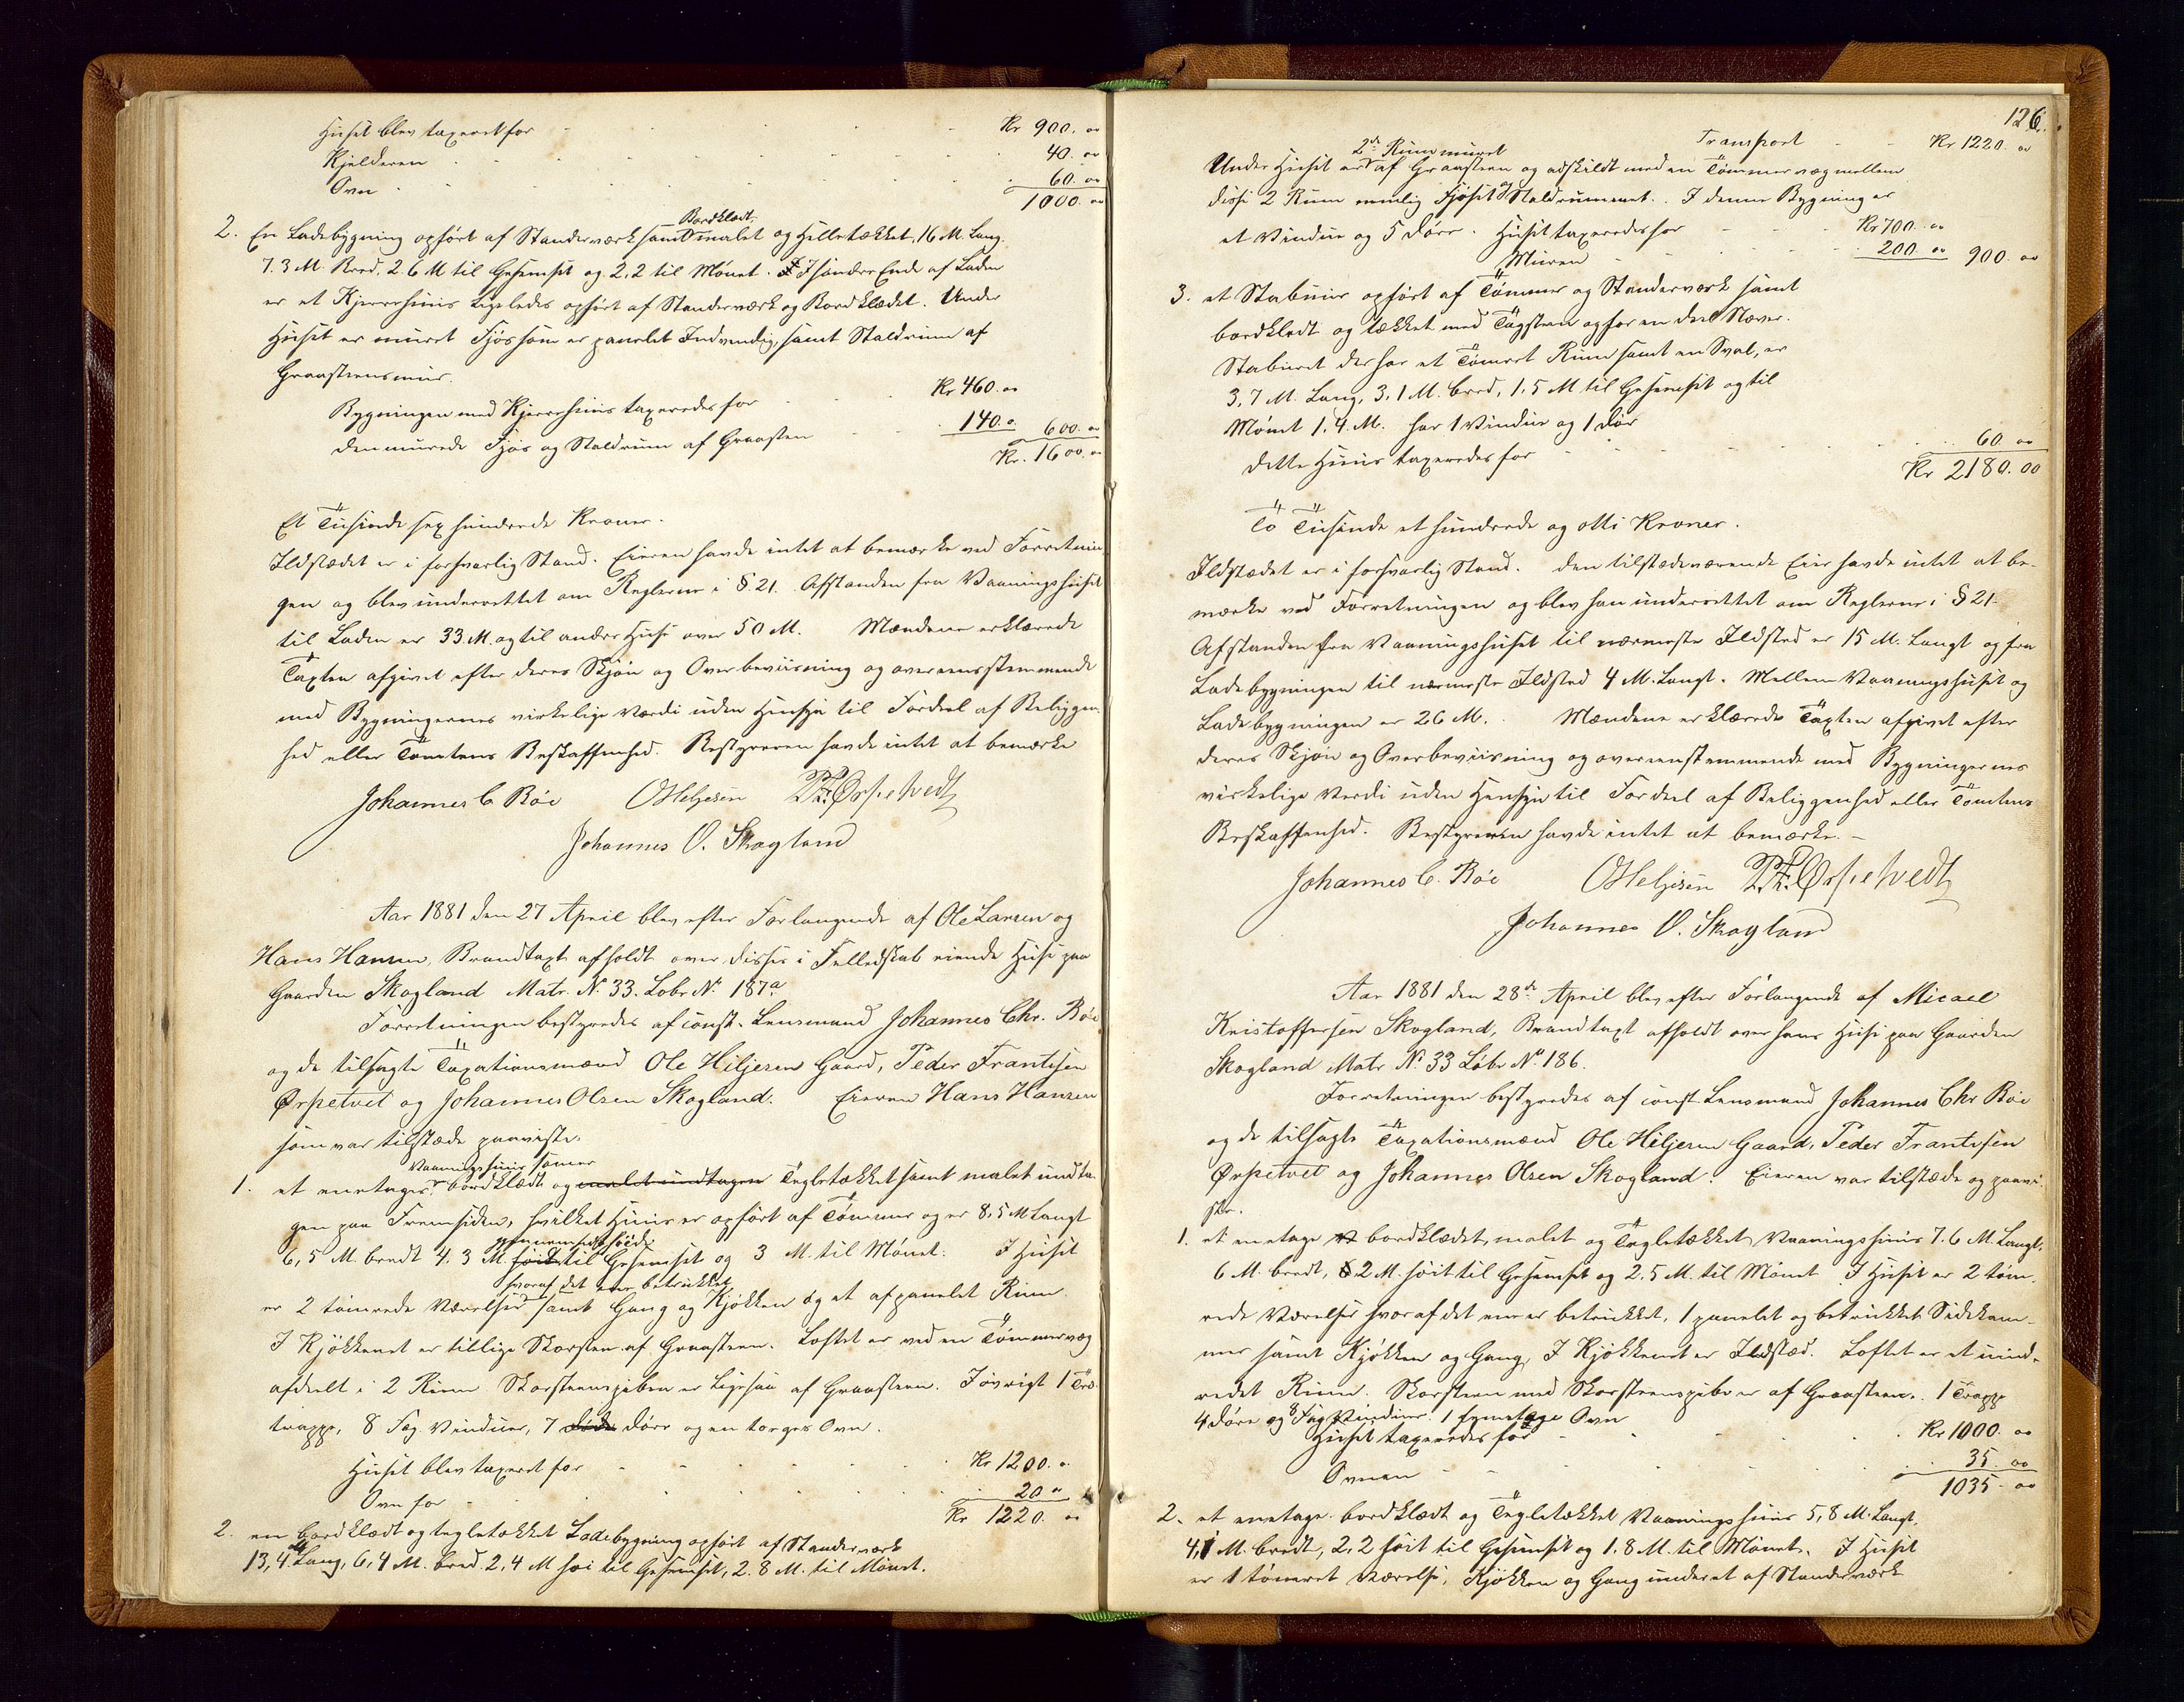 Huset blev taxeret for - - - - - Kr 900. 00
Kjelderen - - - - - 40. 00
Ovn - - - - - 60. 00
1000. 00
2. En Ladebygning opført af Standerværk samt Bordklædt, malet og Helletækket, 16 M. Lang.
7.3 M. Bred, 2.6 M til Gesemset og 2,2 til Mønet. I søndre Ende af Laden
er et Kjerrehuus ligeledes opført af Standerværk og Bordklædet. Under
Huset er muret Fjøs som er panelet Indvendig, samt Staldrum af
Graasteensmur.
Bygningen med Kjerrehuus taxeredes for - - Kr 460. 00
den murede Fjøs og Staldrum af Graasten - - 140. 0 600. 00
Kr. 1600. 00
Et Tusinde sex hundrede Kroner.
Ildstædet er i forsvarlig Stand. Eieren havde intet at bemærke ved Forretnin
gen og blev underrettet om Reglerne i §. 21. Afstanden fra Vaaningshuset
til Laden er 33 M. og til andre Huse over 50 M. Mændene erklærede
Taxten afgivet efter deres Skjøn og Overbeviisning og overeensstemmende
med Bygningernes virkelige Værdi uden Hensyn til Fordeel af Beliggen-
hed eller Tomtens Beskaffenhed. Bestyreren havde intet at bemærke
Johannes C Bøe OHeljesen P.F. Ørpetvedt
Johannes O. Skogland
Aar 1881 den 27 April blev efter Forlangende af Ole Larsen og
Hans Hansen, Brandtaxt afholdt over disses i Fælledskab eiende Huse paa
Gaarden Skogland Matr. No. 33. Løbr No. 187a
Forretningen bestyredes af const. Lensmand Johannes Chr. Bøe
og de tilsagte Taxationsmænd Ole Hiljesen Gaard, Peder Frantzsen
Ørpetvet og Johannes Olsen Skogland. Eieren Hans Hansen
som var tilstæde paaviste.
Vaaningshuus som er
1. et eenetages bordklædt og malet undtagen Tegltækket samt malet undta-
gen paa Fremsiden, hvilket Huus er opført af Tømmer og er 8,5 M Langt
gjennemsnitshøide
6,5 M. bredt 4.3 M. høit til Gesemset og 3 M. til Mønet. I Huset
hvoraf det ene betrukket
er 2 tømrede Værelser samt Gang og Kjøkken og et afpanelet Rum.
I Kjøkkenet er tillige Skorsten af Graasteen. Loftet er ved en Tømmervæg
afdeelt i 2 Rum Skorsteenspiben er Ligesaa af Graasteen. Iøvrigt 1 Træ-
trappe, 8 Fag Vinduer, 7 Døre og en toetages Ovn.
Huset blev taxeret for - - - - Kr 1200. 0
Ovn for - - - - 20 "
Kr 1220. 00
2. en bordklædt og tegltækket Ladebygning opført af Standerværk
13,4 M Lang, 6,4 M. bred 2,4 M høi til Gesemset, 2.8 M. til Mønet.
126.
Transport - - Kr 1220. 00
2de Rum muret
Under Huset er af Graasteen og adskildt med en Tømmervæg mellem
disse 2 Rum nemlig Fjøset og Staldrummet. I denne Bygning er
et Vindue og 5 Døre. Huset taxeredes for - - - Kr 700. 00
Muren - - - 200. 00 900. 00
3. et Stabuur opført af Tømmer og Standerværk samt
bordklædt og tækket med Tagsteen og for en deel Næver.
Staburet der har et Tømret Rum samt en Sval, er
3,7 M. Lang, 3,1 M. bred, 1,5 M til Gesemset og til
Mønet 1.4. M. har 1 Vindue og 1 Dør
dette Huus taxeredes for - - - - 60 00
Kr 2180. 00
To Tusinde et hundrede og otti Kroner.
Ildstædet er i forsvarlig Stand. den tilstædeværende Eier havde intet at be-
mærke ved Forretningen og blev han underrettet om Reglerne i § 21.
Afstanden fra Vaaningshuset til nærmeste Ildsted er 15 M. Langt og fra
Ladebygningen til nærmeste Ildsted 4 M. Langt. Mellem Vaaningshuset og
Ladebygningen er 26 M. Mændene erklærede Taxten afgivet efter
deres Skjøn og Overbeviisning og overeenstemmende med Bygningernes
virkelige Værdi uden Hensyn til Fordeel af Beliggenhed eller Tomtens
Beskaffenhed. Bestyreren havde intet at bemærke. -
Johannes C. Bøe OHeljesen P.F. Ørpetvedt
Johannes O. Skogland
Aar 1881 den 28de April blev efter Forlangende af Micael
Kristoffersen Skogland, Brandtaxt afholdt over hans Huse paa Gaarden
Skogland Matr. No. 33 Løbr No. 186.
Forretningen bestyredes af const Lensmand Johannes Chr Bøe
og de tilsagte Taxationsmænd Ole Hiljesen Gaard, Peder Frantzsen
Ørpetvet og Johannes Olsen Skogland. Eieren var tilstæde og paavi-
ste.
1. et enetage bordklædet, malet og Tegltækket Vaaningshuus 7.6 M. Langt,
6 M. bredt, 2 M. høit til Gesemset og 2,5 M. til Mønet I Huset er 2 tøm-
rede Værelser hvoraf det ene er betrukket, 1 panelet og betrukket Sidekam-
mer samt Kjøkken og Gang, I Kjøkkenet er Ildstæd. Loftet er et uind-
redet Rum. Skorsteen med Skorsteenspibe er af Graasteen. 1 Trappe
4 Døre og 8 Fag Vinduer. 1 femetages Ovn
Huset taxeredes for - - - - Kr 1000. 00
Ovnen - - - - 35. 00
1035. 00
2. et enetage bordklædt og Tegltækket Vaaningshuus 5,8 M. Langt,
4,1 M. bredt, 2,2 høit til Gesemset og 1.8 M. til Mønet. I Huset
er 1 tømret Værelse, Kjøkken og Gang af Standerværk